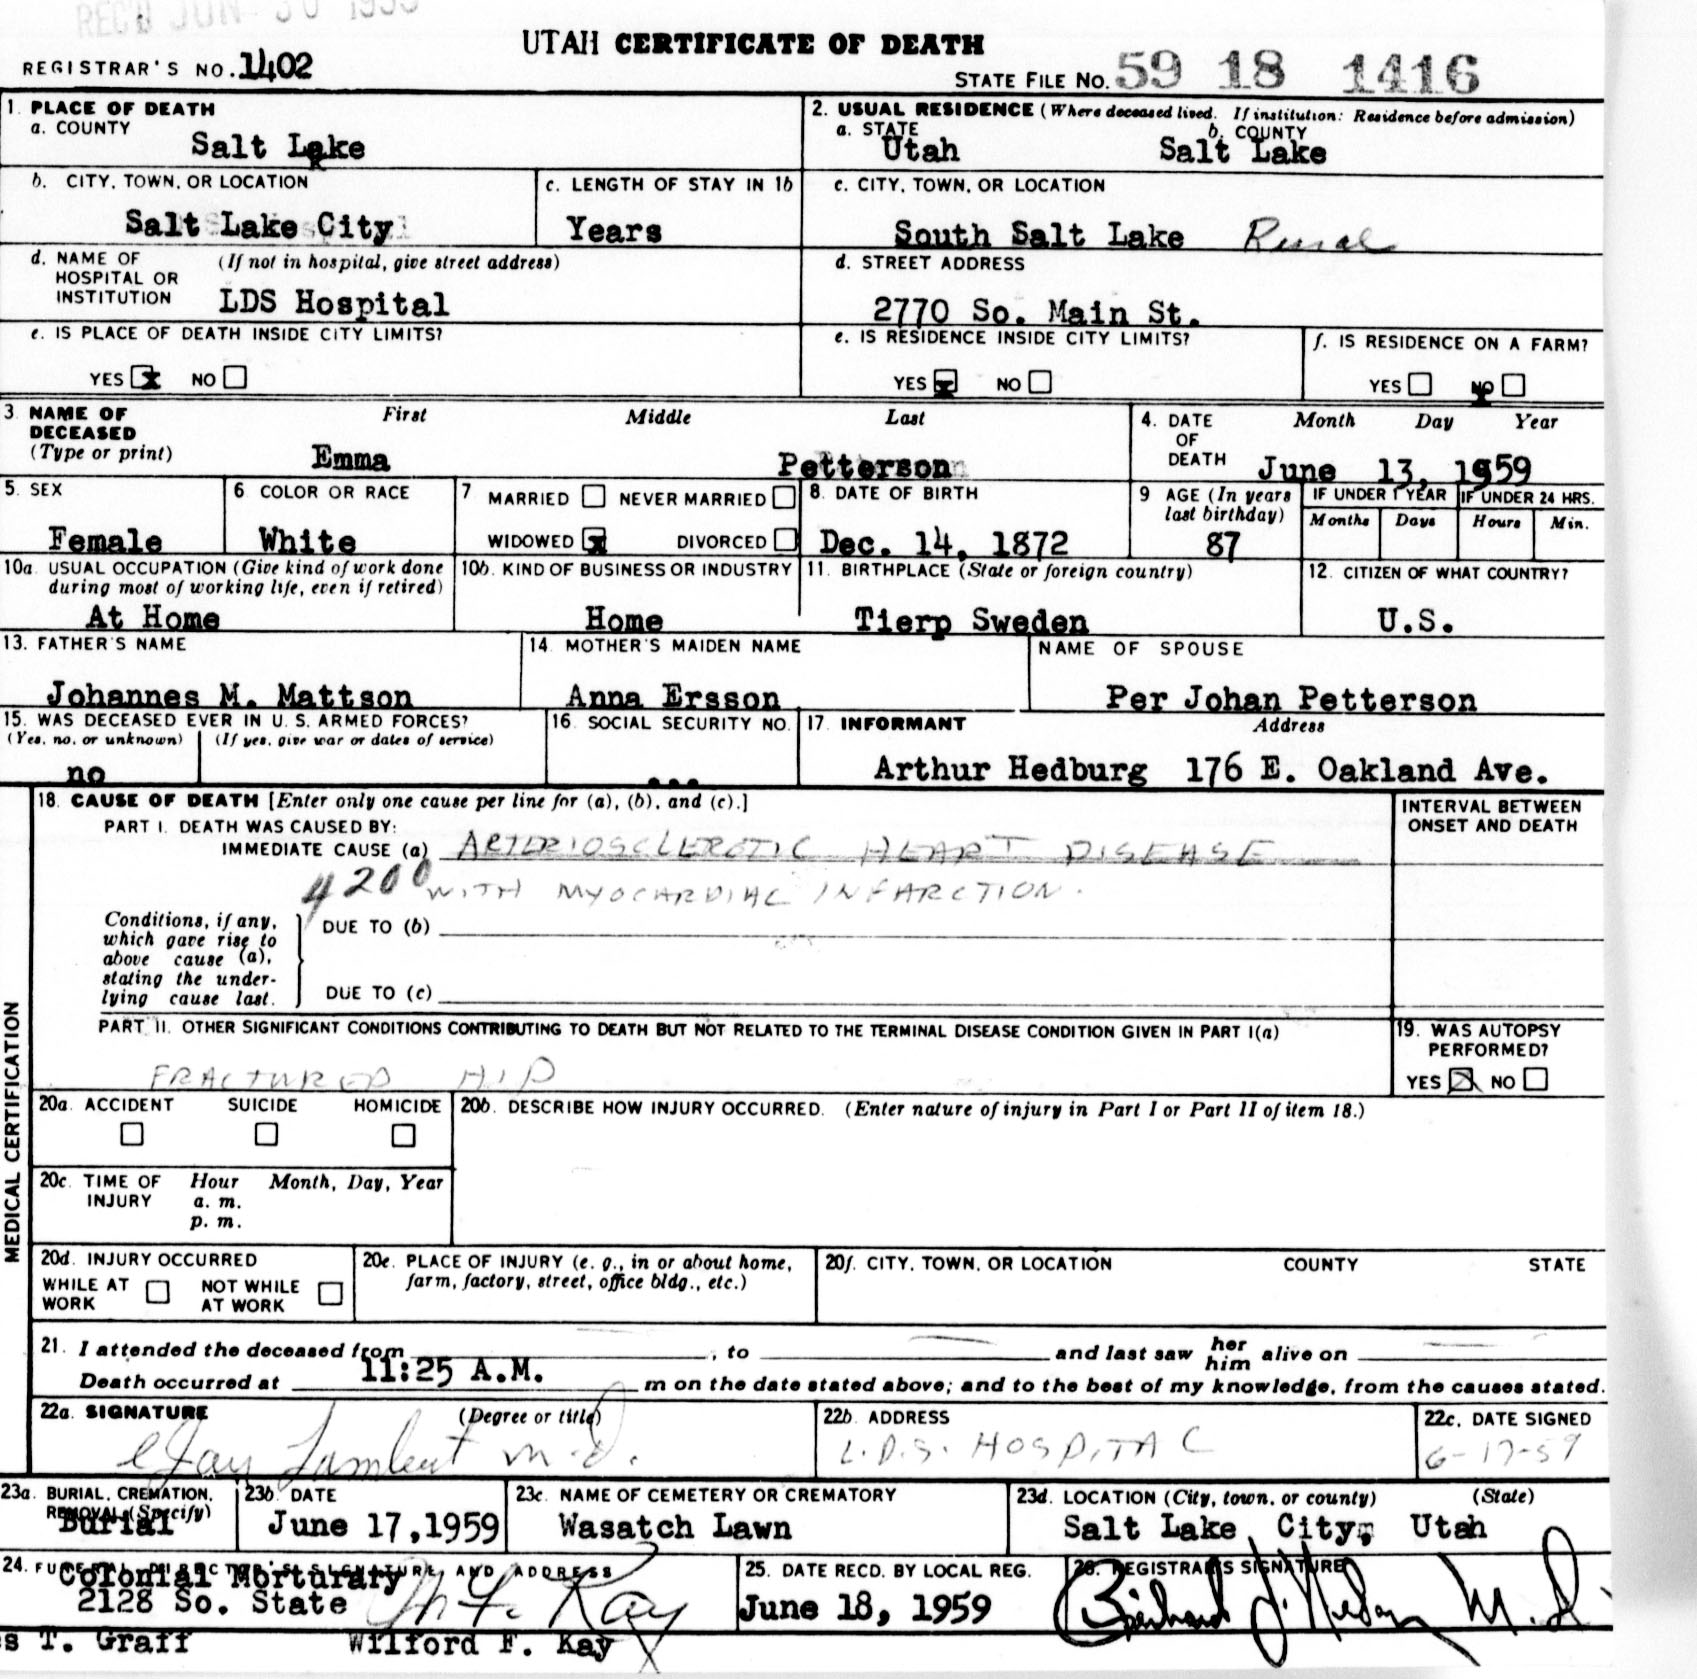 REC'D JUN 30 1959
UTAH CERTIFICATE OF DEATH
REGISTRAR'S NO. 1402
STATE FILE NO. 59 18 1416
1. PLACE OF DEATH
a. COUNTY
Salt Lake
2. USUAL RESIDENCE (Where deceased lived. If institution: Residence before admission)
a. STATE b. COUNTY
Utah Salt Lake
b. CITY, TOWN, OR LOCATION
Salt Lake City
c. LENGTH OF STAY IN 1b
Years
c. CITY, TOWN, OR LOCATION
South Salt Lake Rural
d. NAME OF HOSPITAL OR INSTITUTION (If not in hospital, give street address)
LDS Hospital
d. STREET ADDRESS
2770 So. Main St.
e. IS PLACE OF DEATH INSIDE CITY LIMITS?
YES x NO
e. IS RESIDENCE INSIDE CITY LIMITS?
YES x NO
f. IS RESIDENCE ON A FARM?
YES NO
3. NAME OF DECEASED (Type or print)
First Middle Last
Emma Petterson
4. DATE OF DEATH Month Day Year
June 13, 1959
5. SEX
Female
6 COLOR OR RACE
White
7 MARRIED NEVER MARRIED
WIDOWED x DIVORCED
8. DATE OF BIRTH
Dec. 14, 1872
9 AGE (In years last birthday)
87
IF UNDER 1 YEAR IF UNDER 24 HRS.
Months Days Hours Min.
10a. USUAL OCCUPATION (Give kind of work done during most of working life, even if retired)
At Home
10b. KIND OF BUSINESS OR INDUSTRY
Home
11. BIRTHPLACE (State or foreign country)
Tierp Sweden
12. CITIZEN OF WHAT COUNTRY?
U.S.
13. FATHER'S NAME
Johannes M. Mattson
14. MOTHER'S MAIDEN NAME
Anna Ersson
NAME OF SPOUSE
Per Johan Petterson
15. WAS DECEASED EVER IN U. S. ARMED FORCES?
(Yes, no, or unknown) (If yes, give war or dates of service)
no
16. SOCIAL SECURITY NO.
...
17. INFORMANT Address
Arthur Hedburg 176 E. Oakland Ave.
MEDICAL CERTIFICATION
18. CAUSE OF DEATH [Enter only one cause per line for (a), (b), and (c).]
INTERVAL BETWEEN ONSET AND DEATH
PART I. DEATH WAS CAUSED BY:
IMMEDIATE CAUSE (a) ARTERIOSCLEROTIC HEART DISEASE
4200 WITH MYOCARDIAL INFARCTION.
Conditions, if any, which gave rise to above cause (a), stating the underlying cause last.
DUE TO (b)
DUE TO (c)
PART II. OTHER SIGNIFICANT CONDITIONS CONTRIBUTING TO DEATH BUT NOT RELATED TO THE TERMINAL DISEASE CONDITION GIVEN IN PART I(a)
FRACTURED HIP
19. WAS AUTOPSY PERFORMED?
YES x NO
20a. ACCIDENT SUICIDE HOMICIDE
20b. DESCRIBE HOW INJURY OCCURRED. (Enter nature of injury in Part I or Part II of item 18.)
20c. TIME OF INJURY Hour Month, Day, Year
a. m.
p. m.
20d. INJURY OCCURRED
WHILE AT WORK NOT WHILE AT WORK
20e. PLACE OF INJURY (e. g., in or about home, farm, factory, street, office bldg., etc.)
20f. CITY, TOWN, OR LOCATION COUNTY STATE
21. I attended the deceased from , to and last saw her him alive on
Death occurred at 11:25 A.M. m on the date stated above; and to the best of my knowledge, from the causes stated.
22a. SIGNATURE (Degree or title)
Lambert M.D.
22b. ADDRESS
L.D.S. HOSPITAL
22c. DATE SIGNED
6-17-59
23a. BURIAL, CREMATION, REMOVAL (Specify)
Burial
23b. DATE
June 17, 1959
23c. NAME OF CEMETERY OR CREMATORY
Wasatch Lawn
23d. LOCATION (City, town, or county) (State)
Salt Lake City, Utah
24. FUNERAL DIRECTOR'S SIGNATURE AND ADDRESS
Colonial Morturaty
2128 So. State
W F. Kay
25. DATE RECD. BY LOCAL REG.
June 18, 1959
26. REGISTRAR'S SIGNATURE
M.D.
s T. Graff Wilford F. Kay